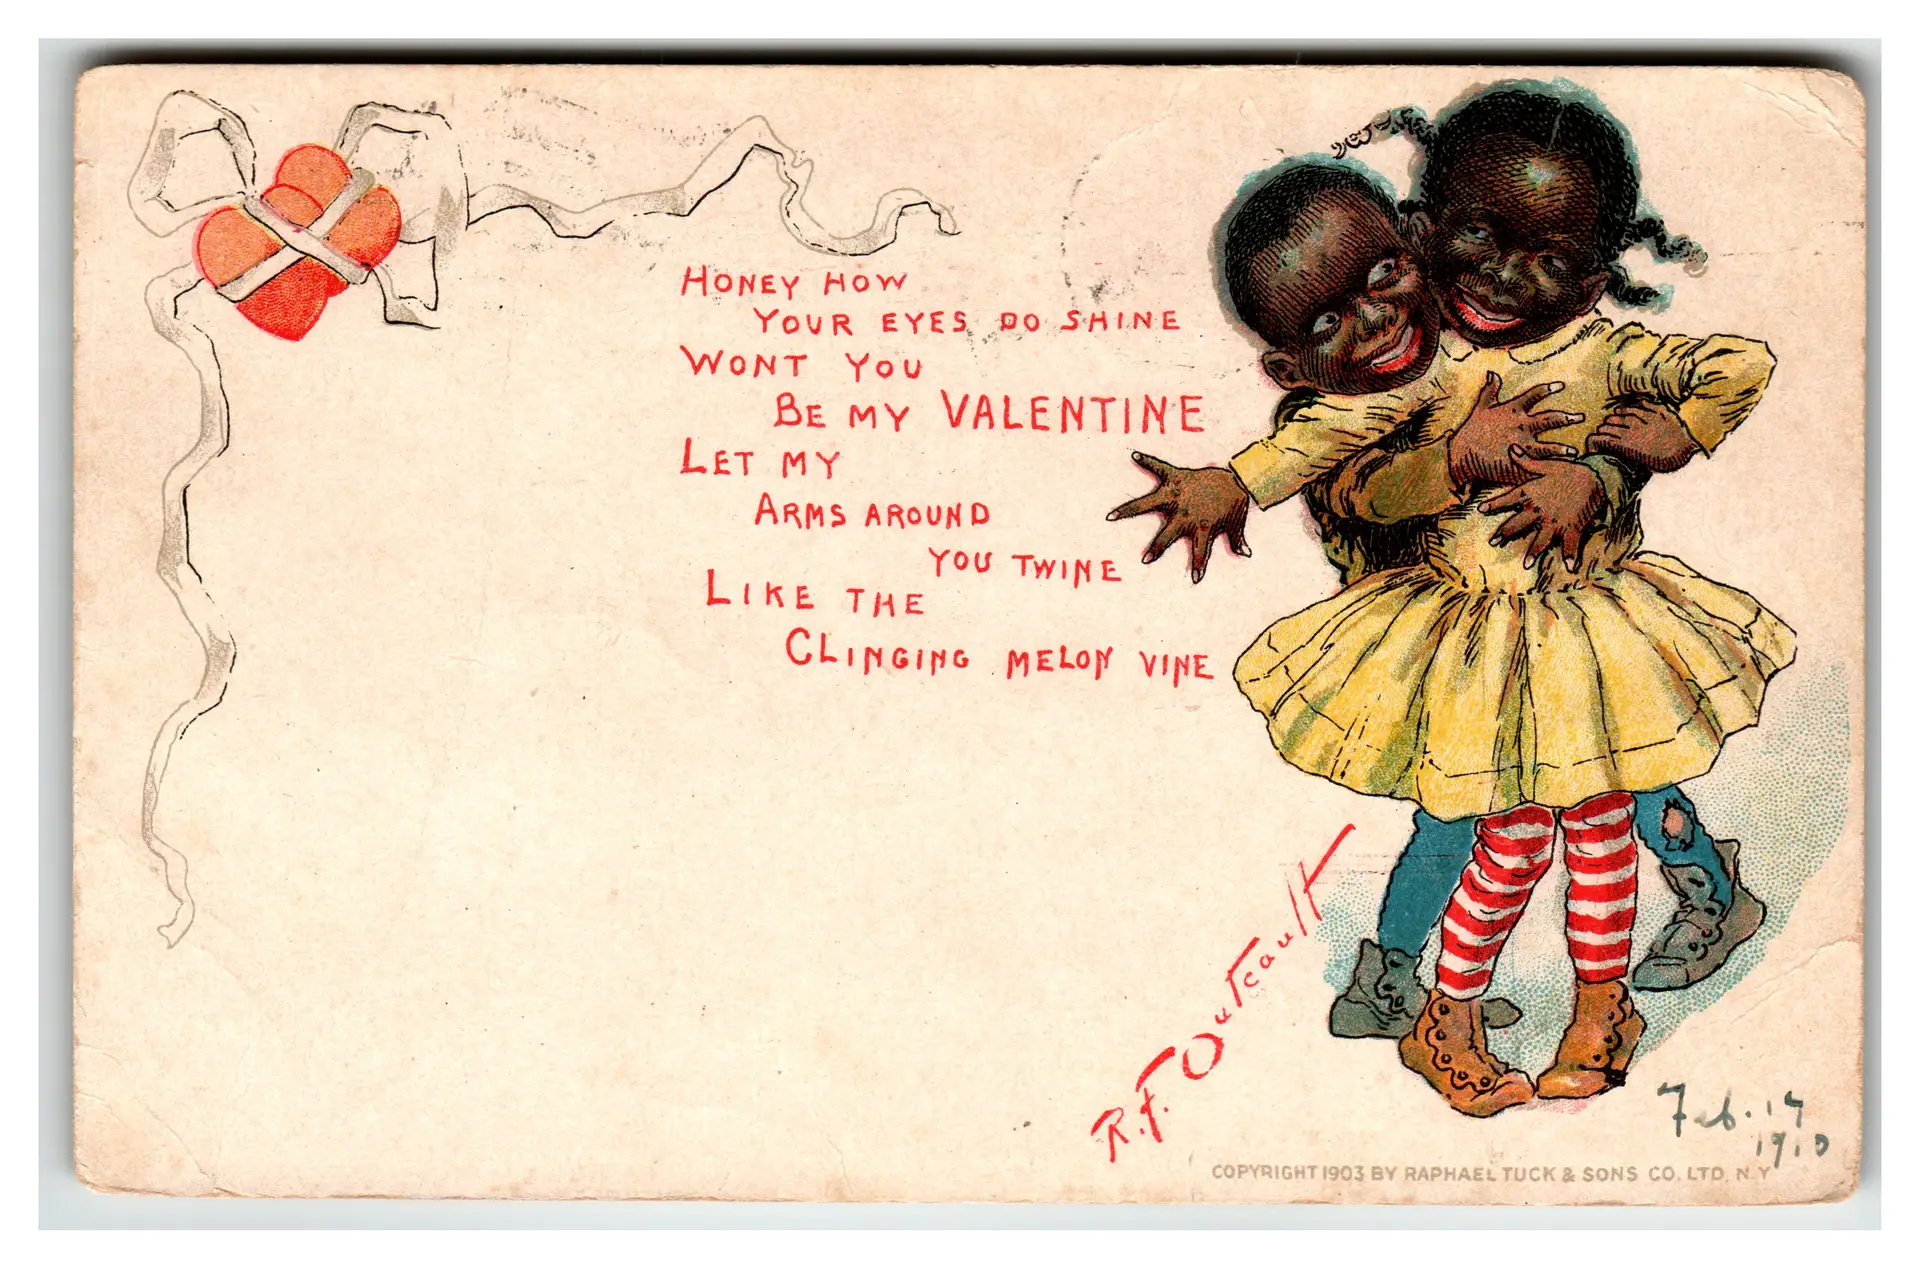 HONEY HOW
YOUR EYES DO SHINE
WONT YOU
BE MY VALENTINE
LET MY
ARMS AROUND
YOU TWINE
LIKE THE
CLINGING MELON VINE
R.F. Outcault
Feb. 14
1910
COPYRIGHT 1903 BY RAPHAEL TUCK & SONS CO. LTD. N.Y